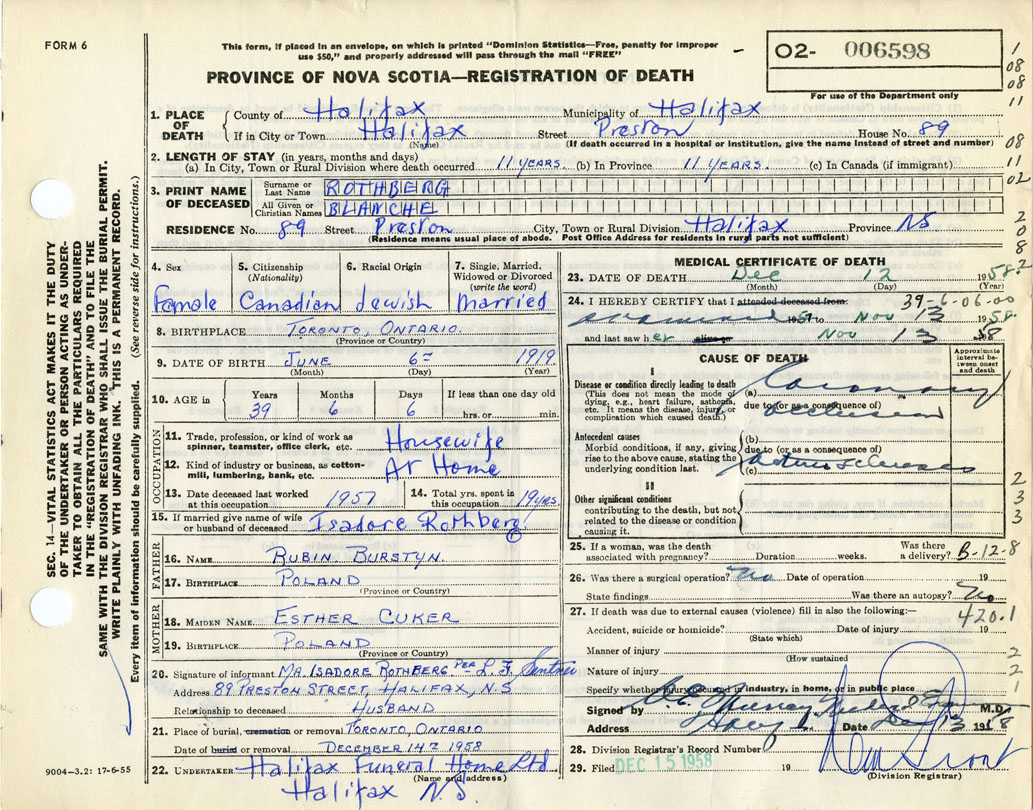 FORM 6
This form, if placed in an envelope, on which is printed "Dominion Statistics—Free, penalty for improper
use $50," and properly addressed will pass through the mail "FREE"
PROVINCE OF NOVA SCOTIA—REGISTRATION OF DEATH
02- 006598
For use of the Department only
1. PLACE OF DEATH
County of Halifax Municipality of Halifax
If in City or Town Halifax Street Preston House No. 89
(Name) (If death occurred in a hospital or Institution, give the name instead of street and number)
2. LENGTH OF STAY (in years, months and days)
(a) In City, Town or Rural Division where death occurred 11 YEARS. (b) In Province 11 YEARS. (c) In Canada (if immigrant)
3. PRINT NAME OF DECEASED
Surname or Last Name ROTHBERG
All Given or Christian Names BLANCHE
RESIDENCE No. 89 Street Preston City, Town or Rural Division Halifax Province NS
(Residence means usual place of abode. Post Office Address for residents in rural parts not sufficient)
4. Sex Female
5. Citizenship (Nationality) Canadian
6. Racial Origin Jewish
7. Single, Married, Widowed or Divorced (write the word) Married
8. BIRTHPLACE TORONTO, ONTARIO.
(Province or Country)
9. DATE OF BIRTH JUNE 6TH 1919.
(Month) (Day) (Year)
10. AGE in Years 39 Months 6 Days 6 If less than one day old hrs. or min.
OCCUPATION
11. Trade, profession, or kind of work as spinner, teamster, office clerk, etc. Housewife
12. Kind of industry or business, as cotton-mill, lumbering, bank, etc. At Home
13. Date deceased last worked at this occupation 1957
14. Total yrs. spent in this occupation 19 yrs.
15. If married give name of wife or husband of deceased Isadore Rothberg
FATHER
16. NAME RUBIN BURSTYN.
17. BIRTHPLACE POLAND
(Province or Country)
MOTHER
18. MAIDEN NAME ESTHER CUKER
19. BIRTHPLACE POLAND
(Province or Country)
20. Signature of informant MR. ISADORE ROTHBERG PER L. F.
Address 89 PRESTON STREET, HALIFAX, N.S
Relationship to deceased HUSBAND
21. Place of burial, cremation or removal TORONTO, ONTARIO
Date of burial or removal DECEMBER 14TH 1958
22. UNDERTAKER Halifax Funeral Home Ltd
(Name and address)
Halifax N.S.
MEDICAL CERTIFICATE OF DEATH
23. DATE OF DEATH Dec 12 1958
(Month) (Day) (Year)
24. I HEREBY CERTIFY that I attended deceased from: 39-6-06-00
Nov 13 1958
and last saw her alive on Nov 13 58
CAUSE OF DEATH
Approximate interval between onset and death
I
Disease or condition directly leading to death
(This does not mean the mode of dying, e.g., heart failure, asthenia, etc. It means the disease, injury, or complication which caused death.)
(a) Coronary
due to (or as a consequence of)
occlusion
Antecedent causes
Morbid conditions, if any, giving rise to the above cause, stating the underlying condition last.
(b)
due to (or as a consequence of)
(c)
II
Other significant conditions contributing to the death, but not related to the disease or condition causing it.
25. If a woman, was the death associated with pregnancy? Duration weeks. Was there a delivery? B-12-8
26. Was there a surgical operation? No Date of operation 19
State findings Was there an autopsy? No
27. If death was due to external causes (violence) fill in also the following:— 420.1
Accident, suicide or homicide? Date of injury 19
(State which)
Manner of injury
(How sustained
Nature of injury
Specify whether injury occurred in industry, in home, or in public place
Signed by M.D.
Address Date Dec 13 1958
28. Division Registrar's Record Number
29. Filed DEC 15 1958
(Division Registrar)
SEC. 14—VITAL STATISTICS ACT MAKES IT THE DUTY
OF THE UNDERTAKER OR PERSON ACTING AS UNDER-
TAKER TO OBTAIN ALL THE PARTICULARS REQUIRED
IN THE "REGISTRATION OF DEATH" AND TO FILE THE
SAME WITH THE DIVISION REGISTRAR WHO SHALL ISSUE THE BURIAL PERMIT.
WRITE PLAINLY WITH UNFADING INK. THIS IS A PERMANENT RECORD.
Every item of information should be carefully supplied. (See reverse side for instructions.)
9004—3.2: 17-6-55
1
08
08
11
08
11
02
2
0
8
2
2
3
3
2
2
1